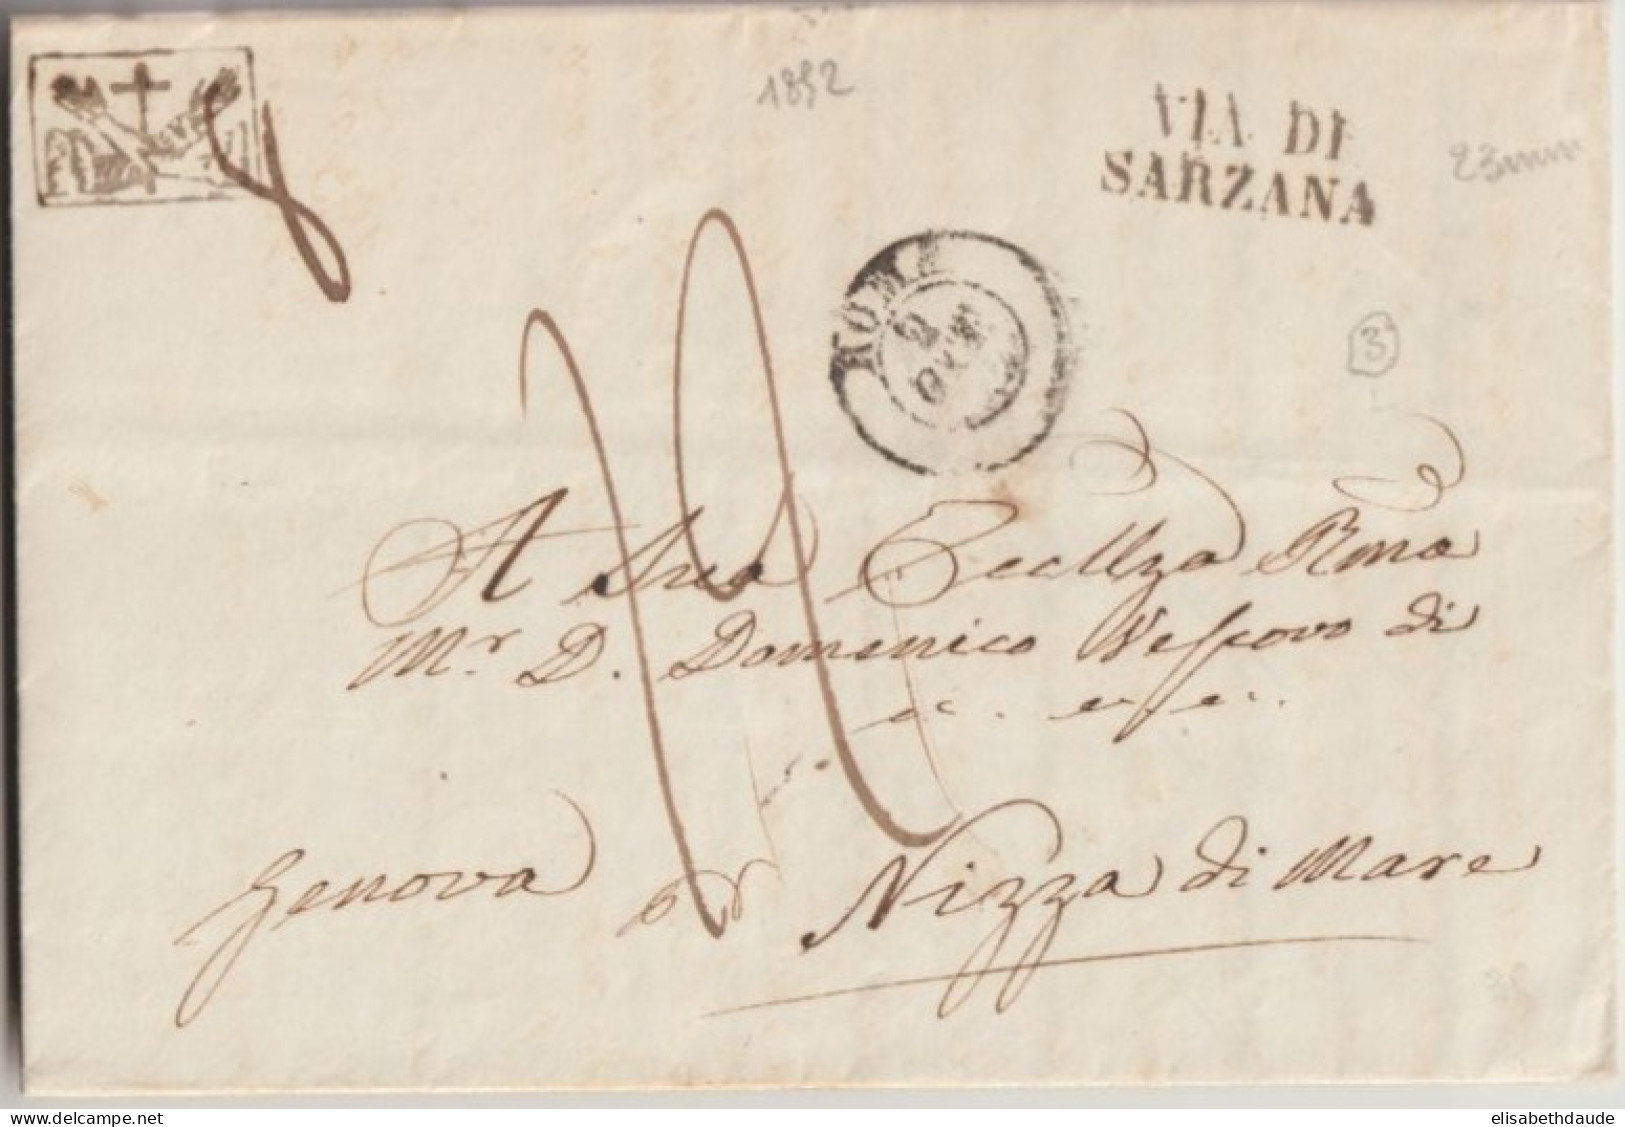 1852
VIA DI
SARZANA
23mm
ROMA
3
A Sua Eccllza Rma
Mr. D. Domenico Vescovo di
Genova pr Nizza di Mare
delcampe.net
elisabethdaude